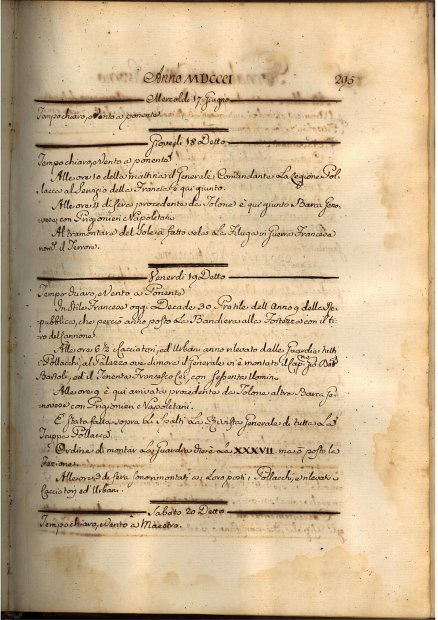 Anno MDCCCI 295
Mercoldì 17 Giugno
Tempo chiaro, e Vento a ponente
Giovedì 18 Detto
Tempo chiaro, e Vento a ponente
Alle ore 10 della mattina il Generale Comandante La Legione Pol
lacca al Servizio della Francia è qui giunto.
Alle ore 4 di sera procedente da Tolone è qui giunto Barca Geno
vese con Prigionieri Napoletani.
Al tramontare del Sole à fatto vela La Filuga in Guerra Francese
nom.ta il Terrore.
Venerdì 19 Detto
Tempo chiaro, e Vento a Ponente
In Stile Francese oggi Decade 30 Pratile dell'Anno 9 della Re
pubblica, che perciò anno posto La Bandiera alla Fortezza con il ti
ro del Canione
Alle ore 6 ½ Cacciatori, ed Urbani anno rilevato dalle Guardie tutti
i Pollacchi, al Palazzo ove dimora il Generale vi è montato il Cap.
Bartoli, ed il Tenente Francesco Lei, con Sessanta Uomini.
Alle ore 9 è qui arrivata procedente da Tolone altra Barca Ge
novese con Prigionieri Napoletani.
È stata fatta sopra Li Spalti La Rivista Generale di tutta La
Truppa Pollacca.
Ordine di montar La Guardia diede La XXXVII ma à posto la
Alle ore di sera sono rimontati a i Loro posti i Pollacchi, e rilevati
Cacciatori ed Urbani.
Sabato 20 Detto
Tempo chiaro, e Vento a Maestro.